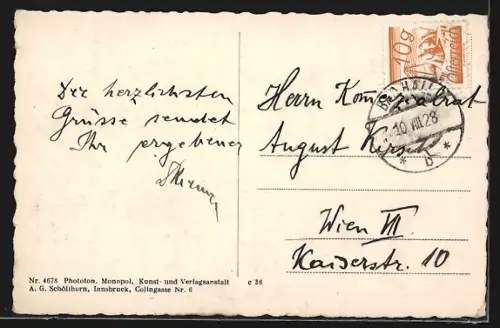 Die herzlichsten
Grüsse sendet
Ihr ergebener
Herrn Kommerzialrat
August Kirsch
Wien VII
Kaiserstr. 10
10g
Österreich
BAD HALL
10.VIII.28
* b *
Nr. 4678 Phototon. Monopol, Kunst- und Verlagsanstalt
A. G. Schöllhorn, Innsbruck, Colingasse Nr. 6
c 38